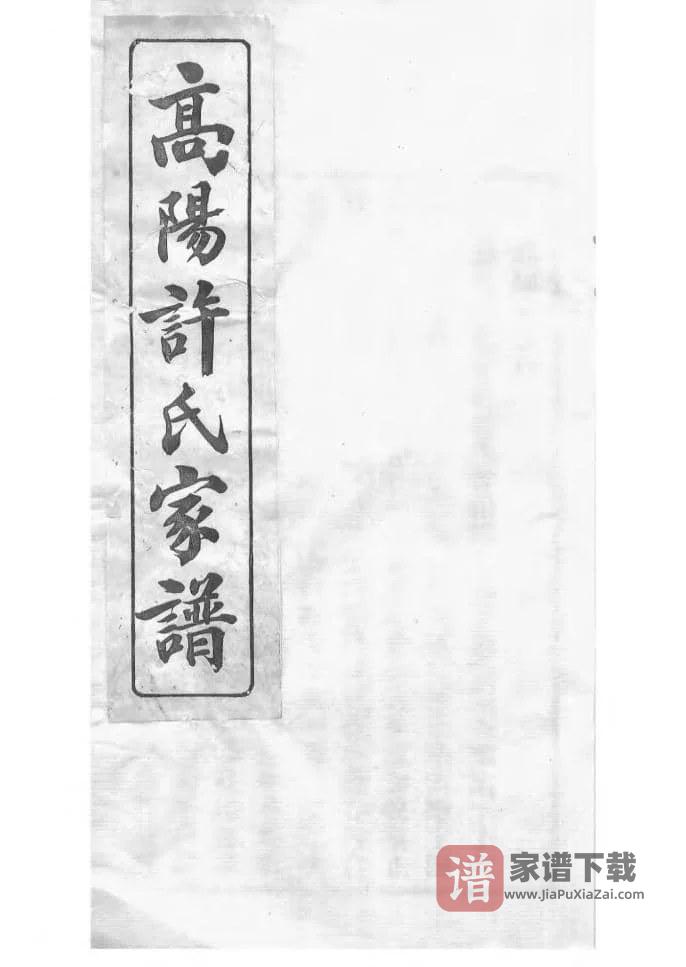 高陽許氏家譜
谱 家谱下载
www.JiaPuXiaZai.com